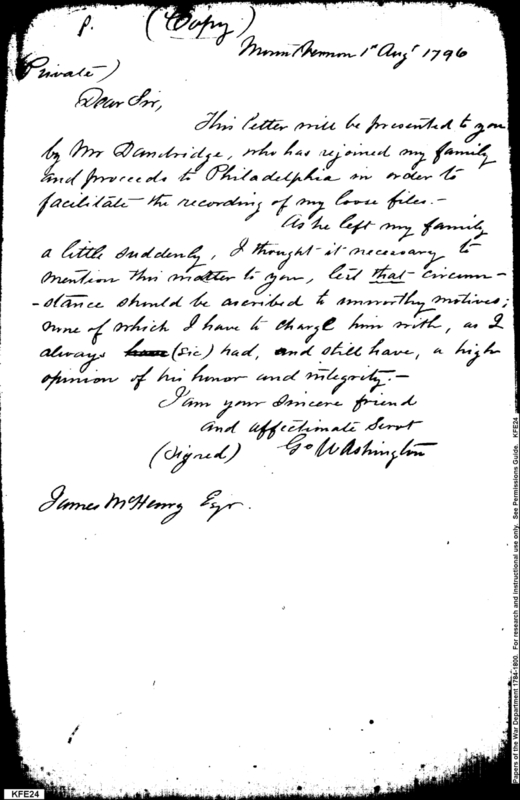 P. (Copy)
Mount Vernon 1st Augt 1796
(Private)
Dear Sir,
This letter will be presented to you
by Mr Dandridge, who has rejoined my family
and proceeds to Philadelphia in order to
facilitate the recording of my loose files.-
As he left my family
a little suddenly, I thought it necessary to
mention this matter to you, lest that circum-
-stance should be ascribed to unworthy motives;
none of which I have to charge him with, as I
always have (sic) had, and still have, a high
opinion of his honor and integrity.-
I am your sincere friend
and affectionate Servt
(signed) Go Washington
James McHenry Esqr.
Papers of the War Department 1784-1800. For research and instructional use only. See Permissions Guide. KFE24
KFE24